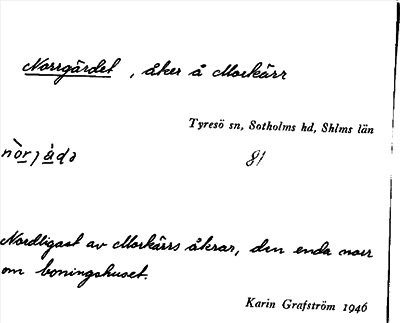 Norrgärdet, åker å Morkärr
Tyresö sn, Sotholms hd, Shlms län
81
Nordligast av Morkärrs åkrar, den enda norr
om boningshuset.
Karin Grafström 1946